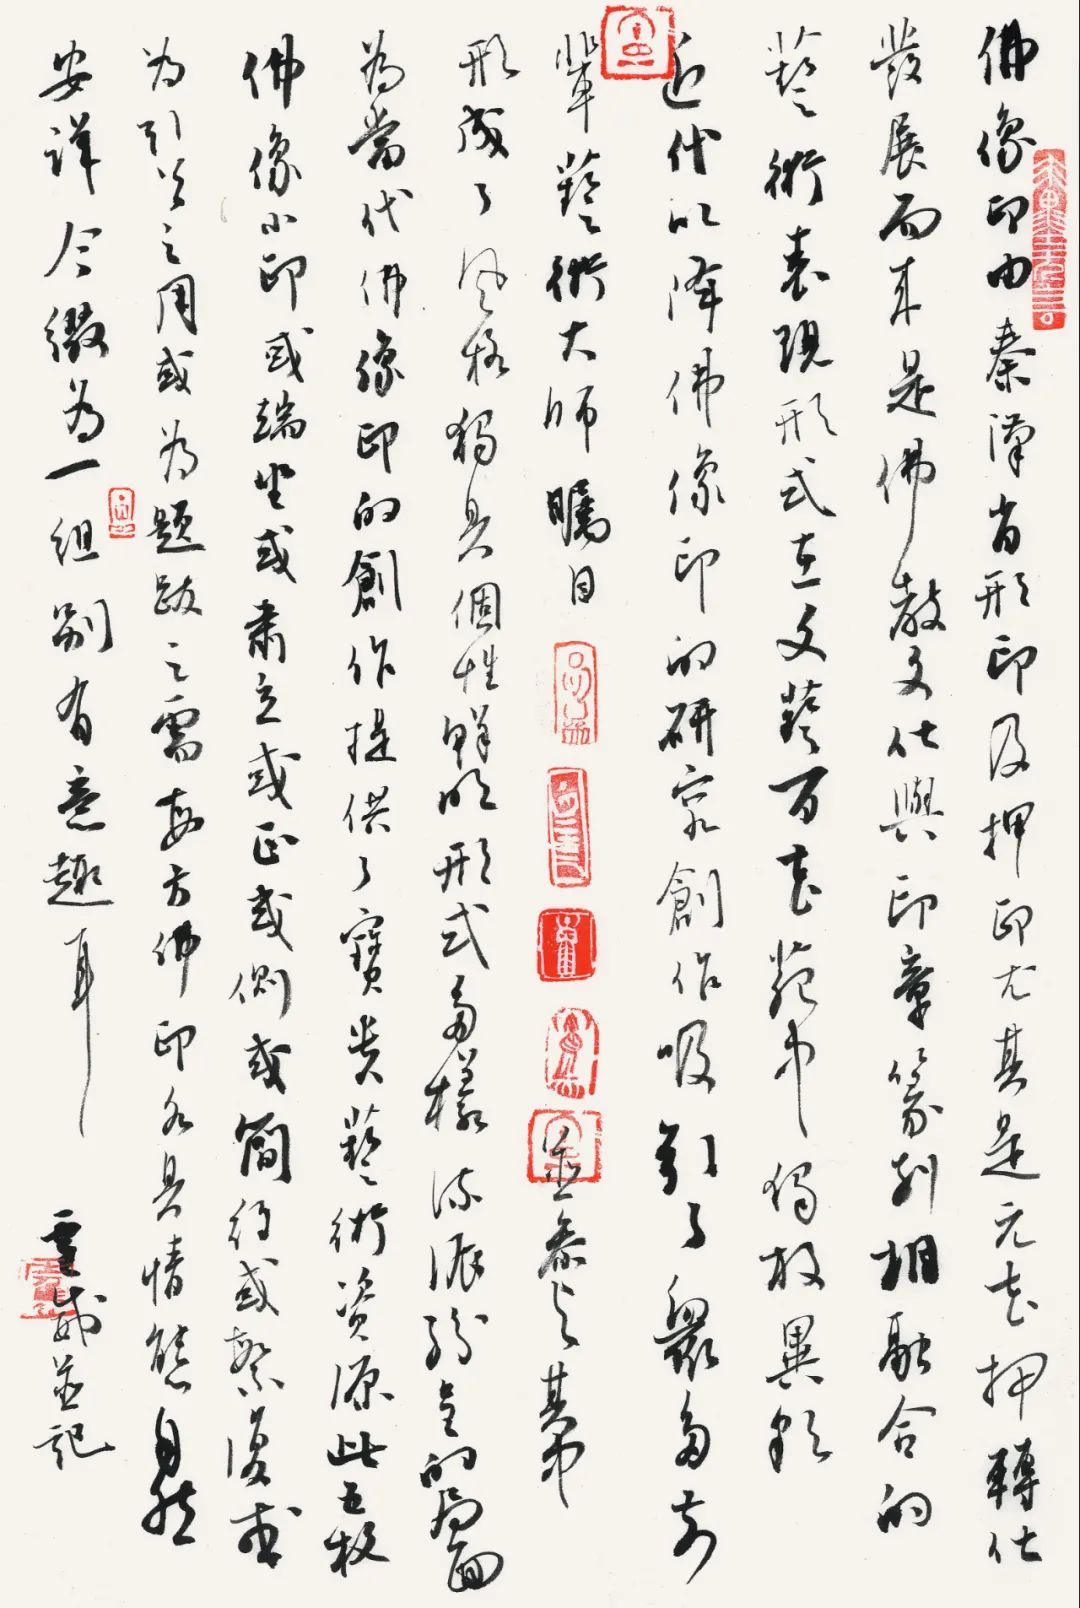 佛像印由秦漢肖形印及押印尤其是元花押轉化
發展而來是佛教文化與印章篆刻相融合的
藝術表現形式在文藝百花苑中獨放異彩
近代以降佛像印的研究創作吸引了眾多前
輩藝術大師矚目並參與其中
形成了風格獨具個性鮮明形式多樣流派紛呈的局面
為當代佛像印的創作提供了寶貴藝術資源此五枚
佛像小印或端坐或肅立或正或側或簡約或繁復或
為引首之用或為題跋之需每方佛印各具情態自然
安詳今綴為一組別有意趣耳
並記